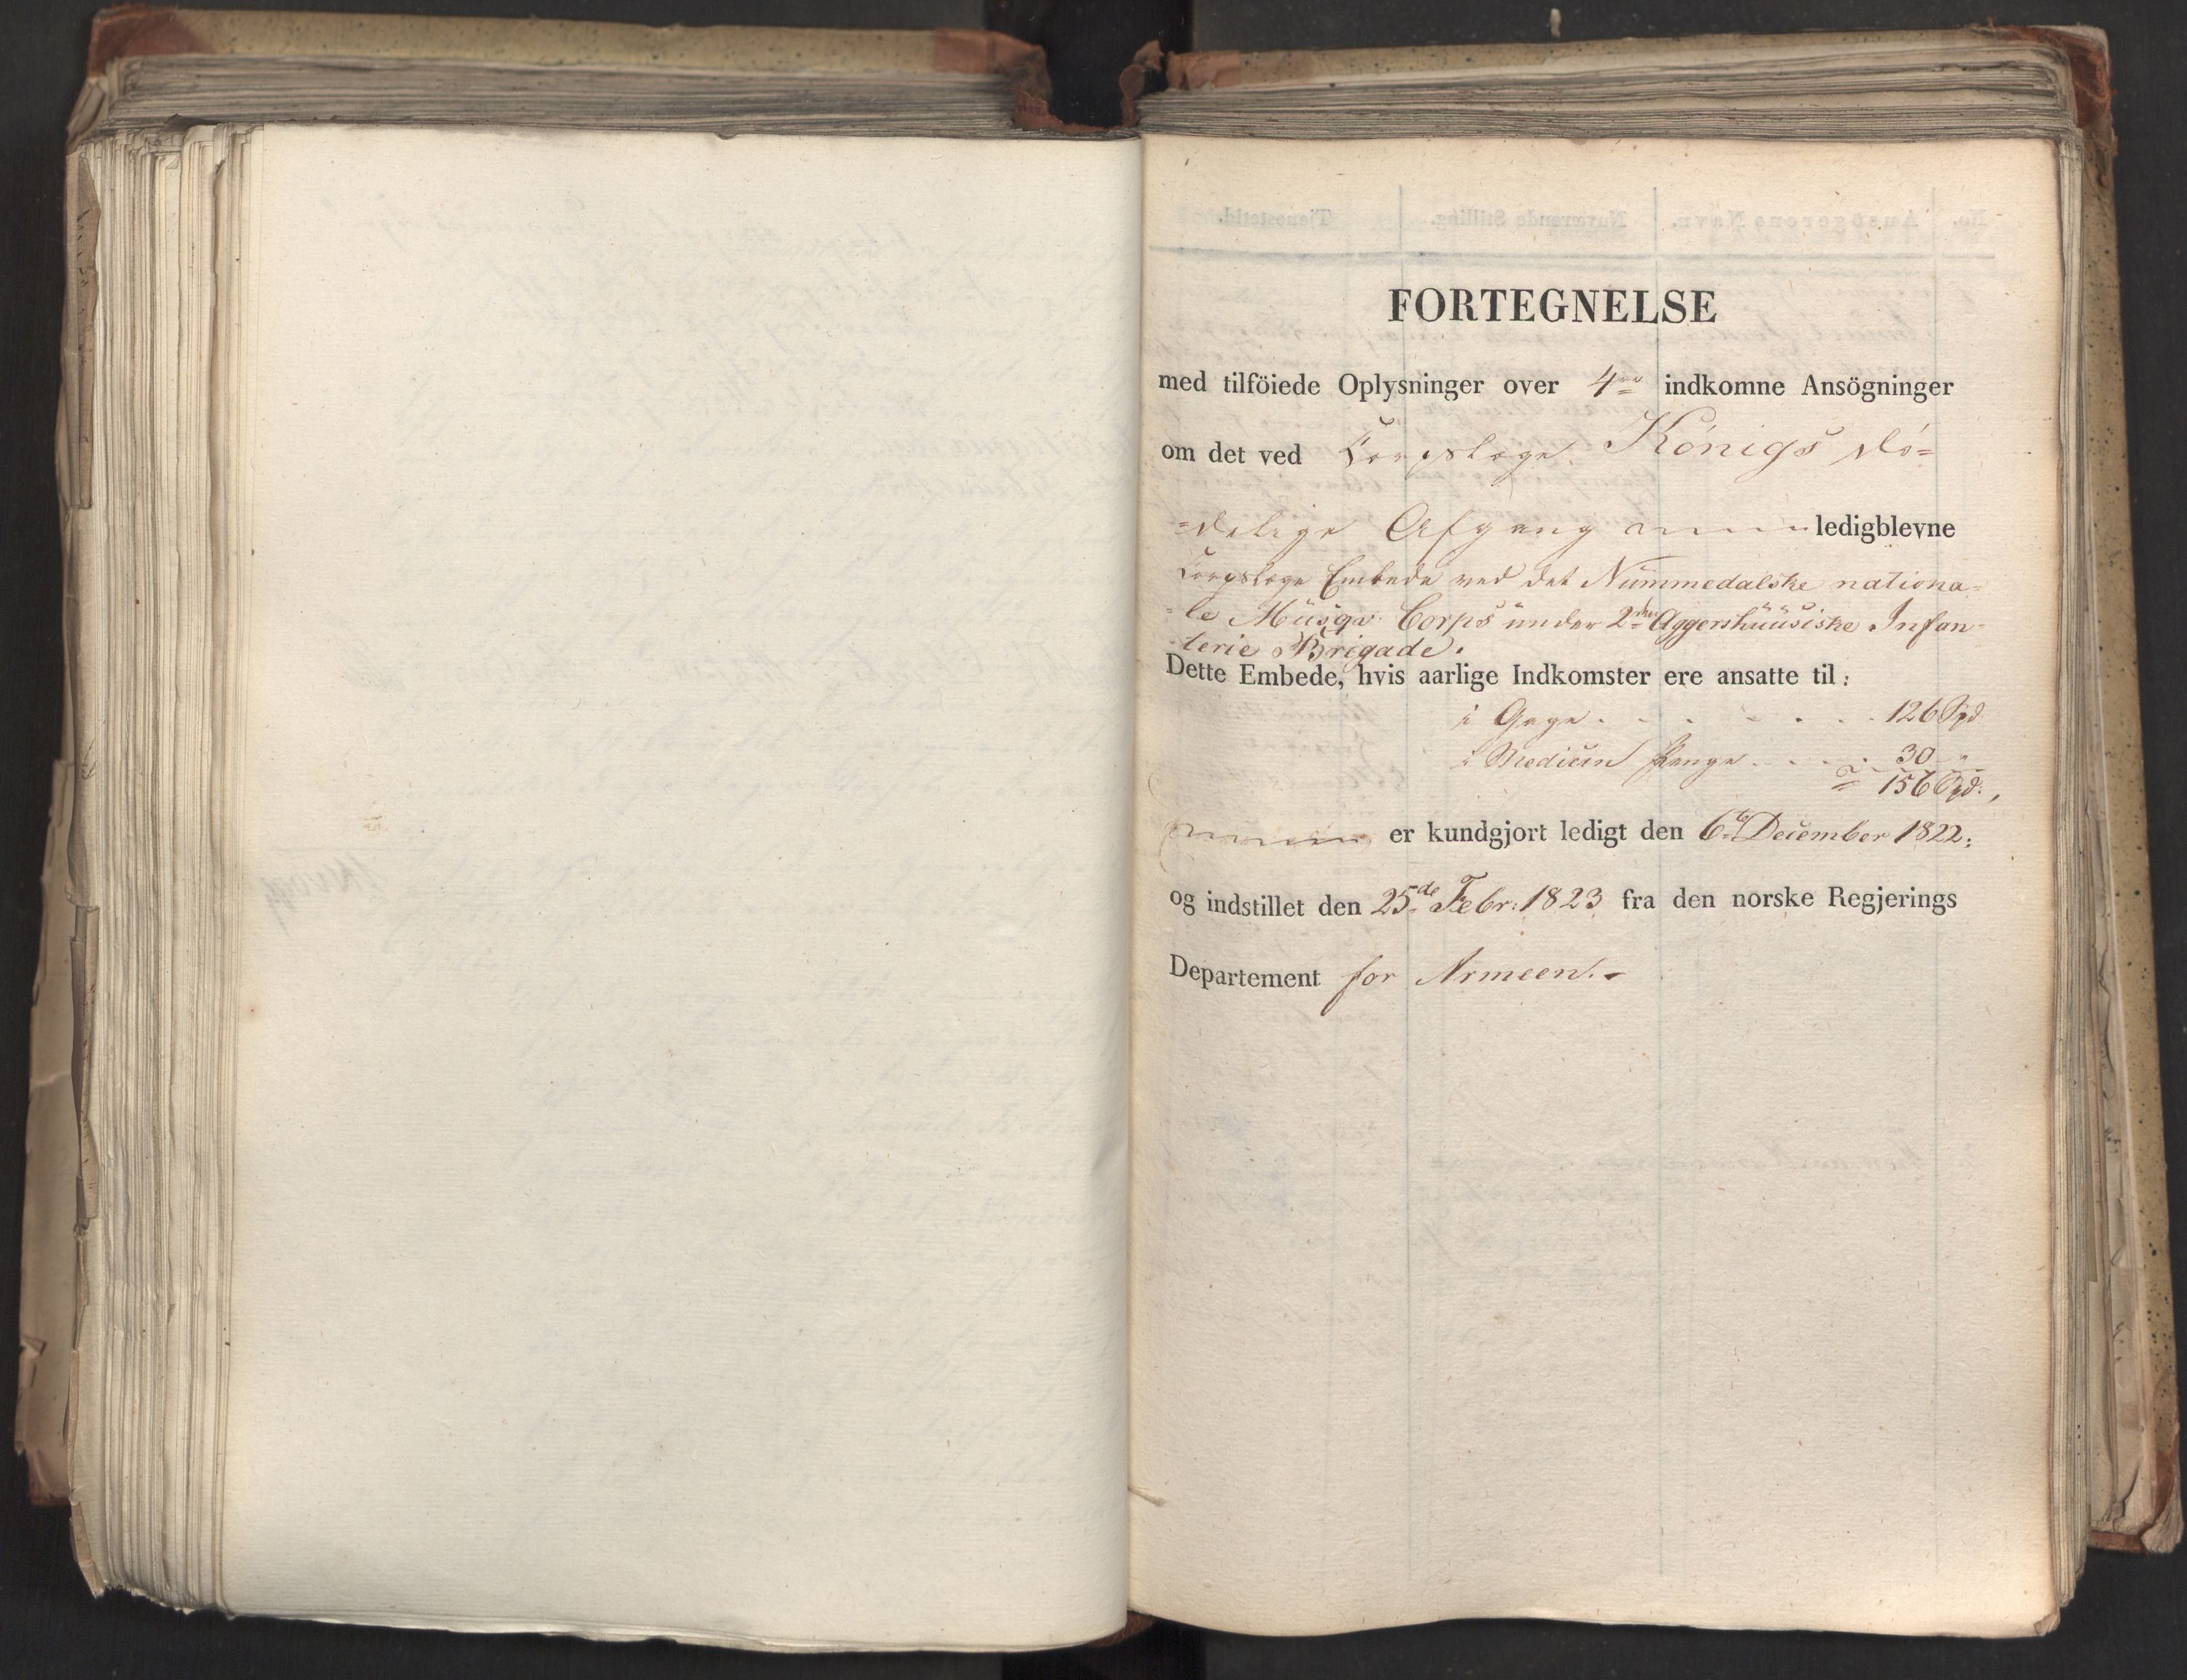 FORTEGNELSE
med tilföiede Oplysninger over 4re indkomne Ansögninger
om det ved Corpslæge Königs dö=
=delige Afgang ledigblevne
Corpslæge Embede ved det Nummedalske nationa=
=le Musqv: Corps under 2det Aggershuusiske Infan=
terie Brigade.
Dette Embede, hvis aarlige Indkomster ere ansatte til:
i Gage . . . . . . . 126 Spd
i Medicin Penge . . . . . 30 "
156 Spd:,
er kundgjort ledigt den 6te December 1822;
og indstillet den 25de Febr: 1823 fra den norske Regjerings
Departement for Armeen.-